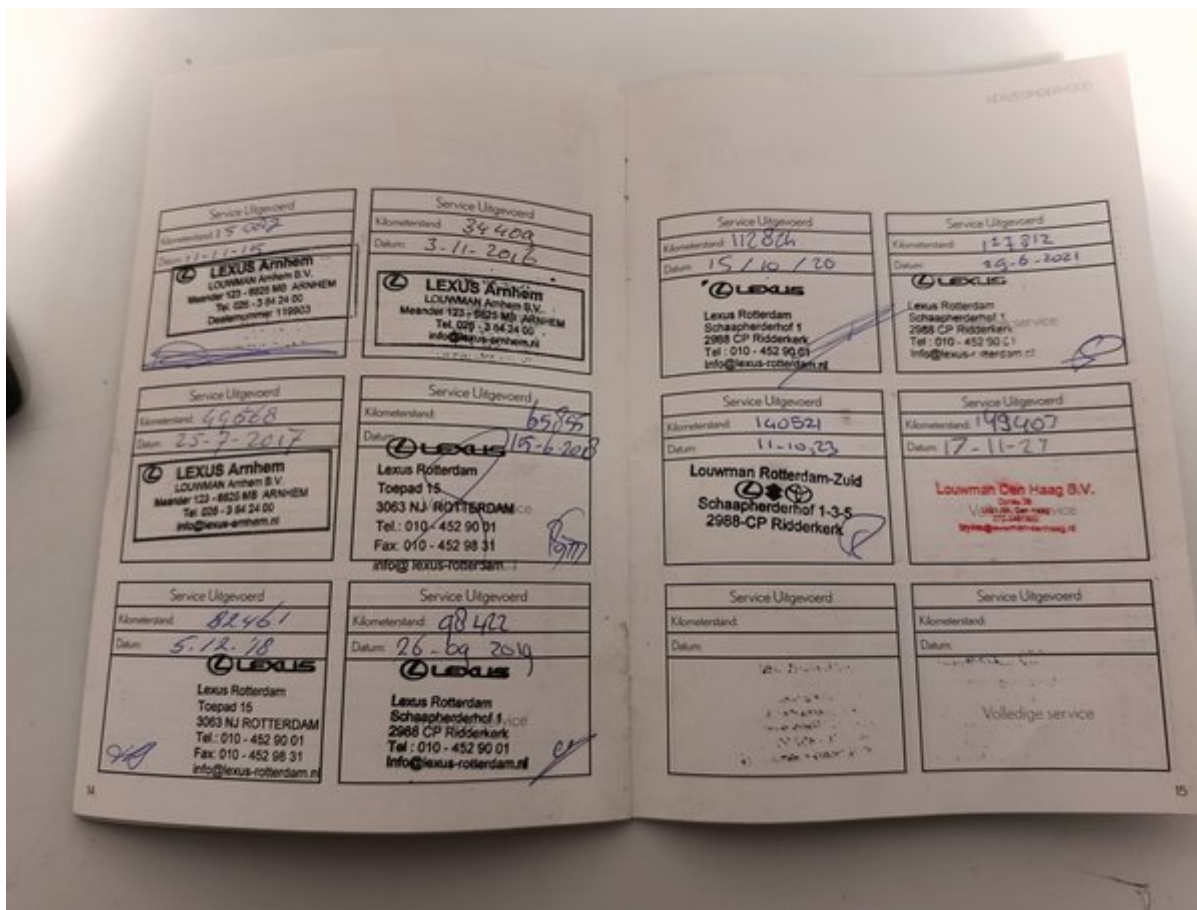 LEXUS ONDERHOUD
Service Uitgevoerd
Kilometerstand:
Datum: 11-11-15
LEXUS Arnhem
LOUWMAN Arnhem B.V.
Meander 123 - 6825 MB ARNHEM
Tel. 026 - 3 64 24 00
Dealernummer 119903
Service Uitgevoerd
Kilometerstand: 34400
Datum: 3-11-2016
LEXUS Arnhem
LOUWMAN Arnhem B.V.
Meander 123 - 6825 MB ARNHEM
Tel. 026 - 3 64 24 00
info@lexus-arnhem.nl
Service Uitgevoerd
Kilometerstand: 49668
Datum: 25-7-2017
LEXUS Arnhem
LOUWMAN Arnhem B.V.
Meander 123 - 6825 MB ARNHEM
Tel. 026 - 3 64 24 00
info@lexus-arnhem.nl
Service Uitgevoerd
Kilometerstand: 65855
Datum: 15-6-2018
LEXUS
Lexus Rotterdam
Toepad 15
3063 NJ ROTTERDAM
Tel.: 010 - 452 90 01
Fax: 010 - 452 98 31
info@lexus-rotterdam.
Service Uitgevoerd
Kilometerstand: 82461
Datum: 5.12.'18
LEXUS
Lexus Rotterdam
Toepad 15
3063 NJ ROTTERDAM
Tel.: 010 - 452 90 01
Fax: 010 - 452 98 31
info@lexus-rotterdam.nl
Service Uitgevoerd
Kilometerstand: 98422
Datum: 26-09 2019
LEXUS
Lexus Rotterdam
Schaapherderhof 1
2988 CP Ridderkerk
Tel : 010 - 452 90 01
Info@lexus-rotterdam.nl
14
Service Uitgevoerd
Kilometerstand: 112824
Datum: 15/10/20
LEXUS
Lexus Rotterdam
Schaapherderhof 1
2988 CP Ridderkerk
Tel : 010 - 452 90 01
Info@lexus-rotterdam.nl
Service Uitgevoerd
Kilometerstand: 127812
Datum: 29-6-2021
LEXUS
Lexus Rotterdam
Schaapherderhof 1
2988 CP Ridderkerk
Tel : 010 - 452 90 01
Info@lexus-rotterdam.nl
Service Uitgevoerd
Kilometerstand: 140521
Datum: 11-10,23
Louwman Rotterdam-Zuid
Schaapherderhof 1-3-5
2988-CP Ridderkerk
Service Uitgevoerd
Kilometerstand: 149407
Datum: 17-11-27
Louwman Den Haag B.V.
Service Uitgevoerd
Kilometerstand:
Datum:
Service Uitgevoerd
Kilometerstand:
Datum:
Volledige service
15